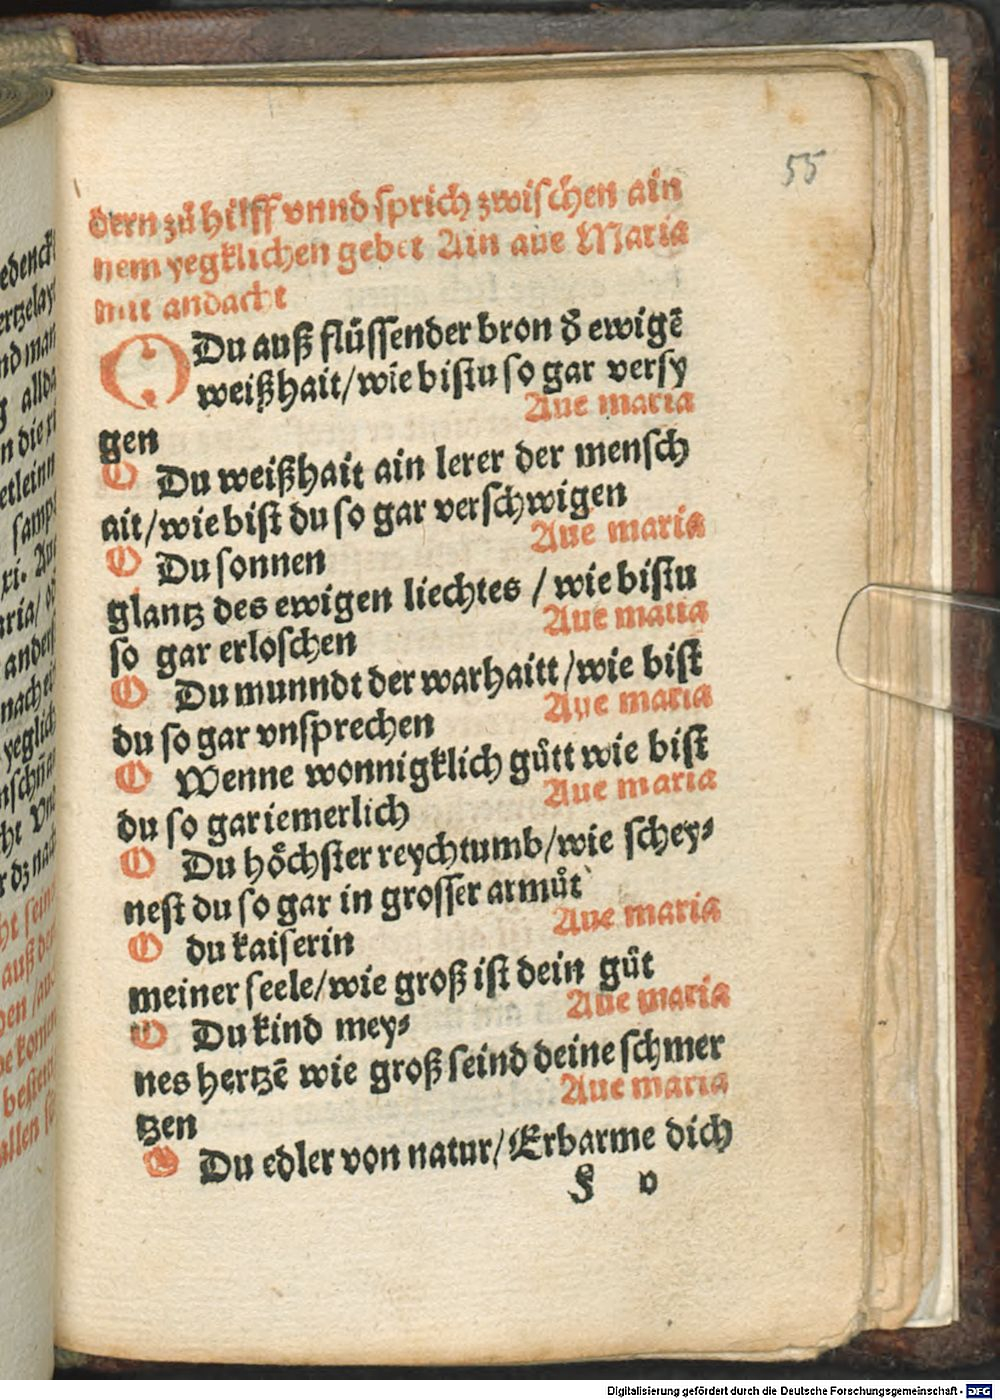 55
dern zů hilff vnnd sprich zwischen ain
nem yegklichen gebet Ain aue Maria
mit andacht
O Du auß flüssender bron d̄ ewigē
weißhait/wie bistu so gar versy
gen Aue maria
O Du weißhait ain lerer der mensch
ait/wie bist du so gar verschwigen
Aue maria
O Du sonnen
glantz des ewigen liechtes / wie bistu
so gar erloschen Aue maria
O Du munndt der warhaitt/wie bist
du so gar vnsprechen Aue maria
O Wenne wonnigklich gůtt wie bist
du so gar iemerlich Aue maria
O Du höchster reychtumb/wie schey⸗
nest du so gar in grosser armůt
Aue maria
O du kaiserin
meiner seele/wie groß ist dein gůt
Aue maria
O Du kind mey⸗
nes hertzē wie groß seind deine schmer
tzen Aue maria
O Du edler von natur/Erbarme dich
F v
edenck
ertzelay
nd man
allda
n die
etleinn
samp
xi. Aue
aria/
anders
nach
yeglich
cht
r dz nach
ht sein
auß der
ben /
kom
allen
Digitalisierung gefördert durch die Deutsche Forschungsgemeinschaft - DFG